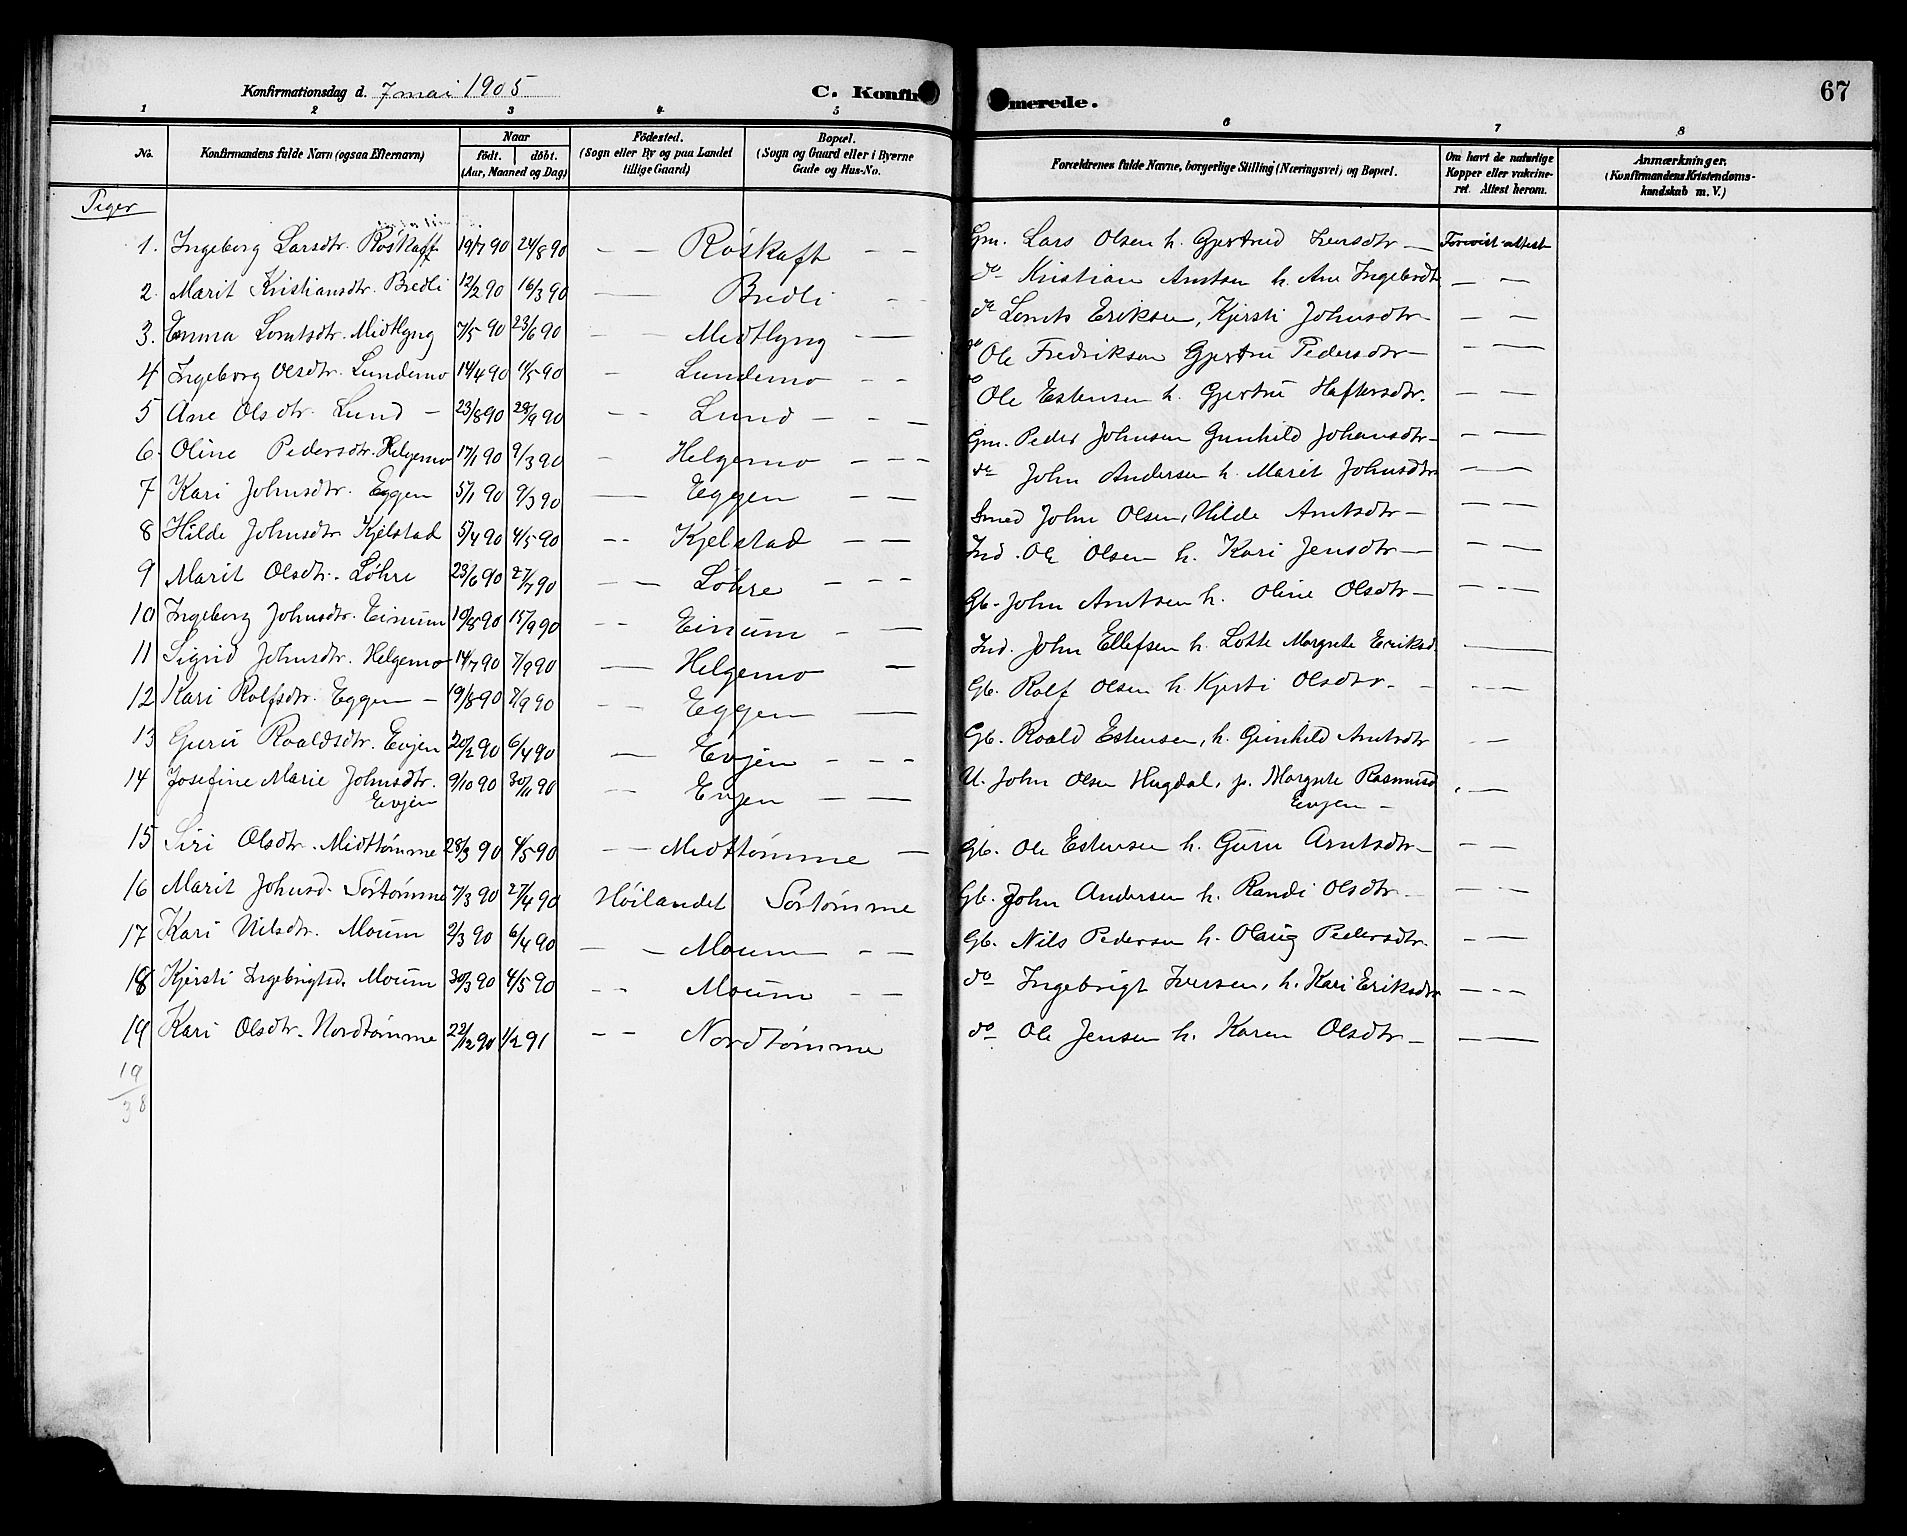 Konfirmationsdag d. 7 mai 1905 C. Konfirmerede. 67
1 2 3 4 5 6 7 8
No. Konfirmandens fulde Navn (ogsaa Efternavn) Naar født. døbt. (Aar, Maaned og Dag) Födested. (Sogn eller By og paa Landet tillige Gaard) Bopæl. (Sogn og Gaard eller i Byerne Gade og Hus-No. Forældrenes fulde Navne, borgerlige Stilling (Næringsvei) og Bopæl. Om havt de naturlige Kopper eller vakcineret. Attest herom. Anmærkninger. (Konfirmandens Kristendomskundskab m. V.)
Piger
1. Ingeborg Larsdtr. Röskaft 19/7 90 24/8 90 — — Röskaft — — Gm. Lars Olsen h. Gjertrud Iversdtr — Forevist attest
2. Marit Kristiansdtr. Bredli 12/2 90 16/3 90 — Bredli — — do Kristian Arntsen h. Ane Ingebrdtr — —
3. Emma Lorntsdtr. Midtlyng 7/5 90 23/6 90 — — Midtlyng — — do Lornts Eriksen, Kjersti Johnsdtr — — —
4 Ingeborg Olsdtr. Lundemo 14/4 90 11/5 90 — Lundemo — — do Ole Fredriksen Gjertru Pedersdtr — — —
5 Ane Olsdtr. Lund — 23/8 90 28/9 90 — — Lund — — — do Ole Estensen h. Gjertru Haftersdtr. — —
6. Oline Pedersdtr. Helgemo 17/1 90 9/3 90 — Helgemo — — — Gm. Peder Johnsen Gunhild Johansdtr — — —
7 Kari Johnsdtr. Eggen 5/1 90 9/3 90 — Eggen — — do John Andersen h. Marit Johnsdtr — —
8 Hilde Johnsdtr Kjelstad 5/4 90 4/5 90 — — Kjelstad — — Smed John Olsen, Hilde Arntsdtr — — —
9 Marit Olsdtr. Løhre 23/6 90 27/7 90 — — Løhre — — — Ind. Ole Olsen h. Kari Jensdtr — — —
10 Ingeborg Johnsdtr. Einum 10/8 90 15/9 90 — — Einum — — Gb. John Arntsen h. Oline Olsdtr — — — —
11 Sigrid Johnsdtr. Helgemo 14/7 90 7/9 90 — Helgemo — Ind. John Ellefsen h. Lotte Margrete Eriksd. —
12 Kari Rolfsdtr. Eggen — 19/8 90 7/9 90 — — Eggen — Gb. Rolf Olsen h. Kjersti Olsdtr. — — — —
13 Guru Roaldsdtr. Evjen 20/2 90 6/4 90 — Evjen — — — Gb. Roald Estensen, h. Gunhild Arntsdtr — —
14 Josefine Marie Johnsdtr. Evjen 9/10 90 30/11 90 — — Evjen — — U. John Olsen Hugdal, p. Margrete Rasmusd. Evjen — —
15 Siri Olsdtr. Midttømme 28/3 90 4/5 90 — — Midttømme — Gb. Ole Estensen h. Guru Arntsdtr — — —
16 Marit Johnsd. Sørtømme 7/3 90 27/4 90 Höilandet Sörtømme Gb. John Andersen h. Randi Olsdtr — — — —
17 Kari Nilsdtr. Moum 2/3 90 6/4 90 — — Moum — — Gb. Nils Pedersen h. Olaug Pedersdtr. — —
18 Kjersti Ingebrigtsd. Moum 30/3 90 4/5 90 — — Moum — — do Ingebrigt Iversen, h. Kari Eriksdtr — — —
19 Kari Olsdtr. Nordtømme 22/12 90 1/2 91 — — Nordtømme do Ole Jensen h. Karen Olsdtr — — —
19
38